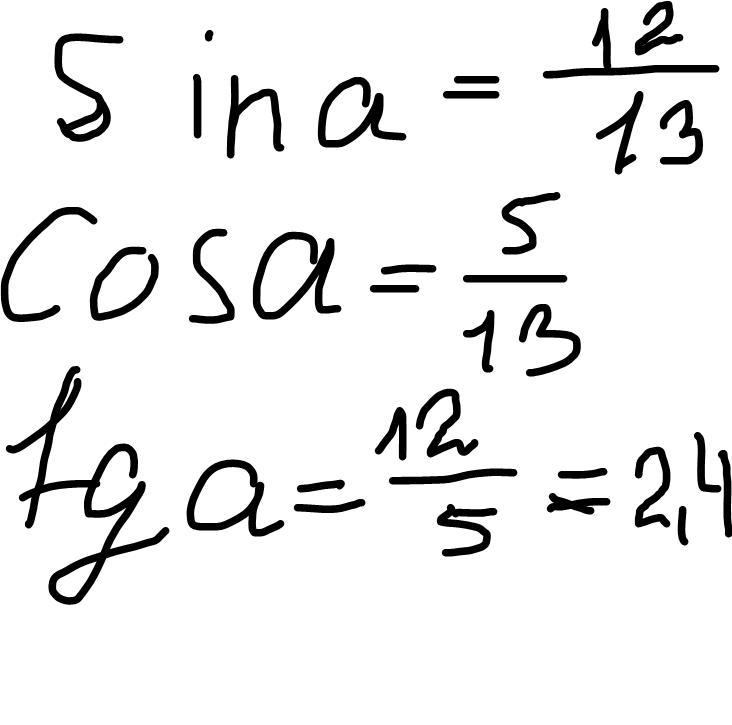 Sin a = 12/13
Cos a = 5/13
tg a = 12/5 = 2,4